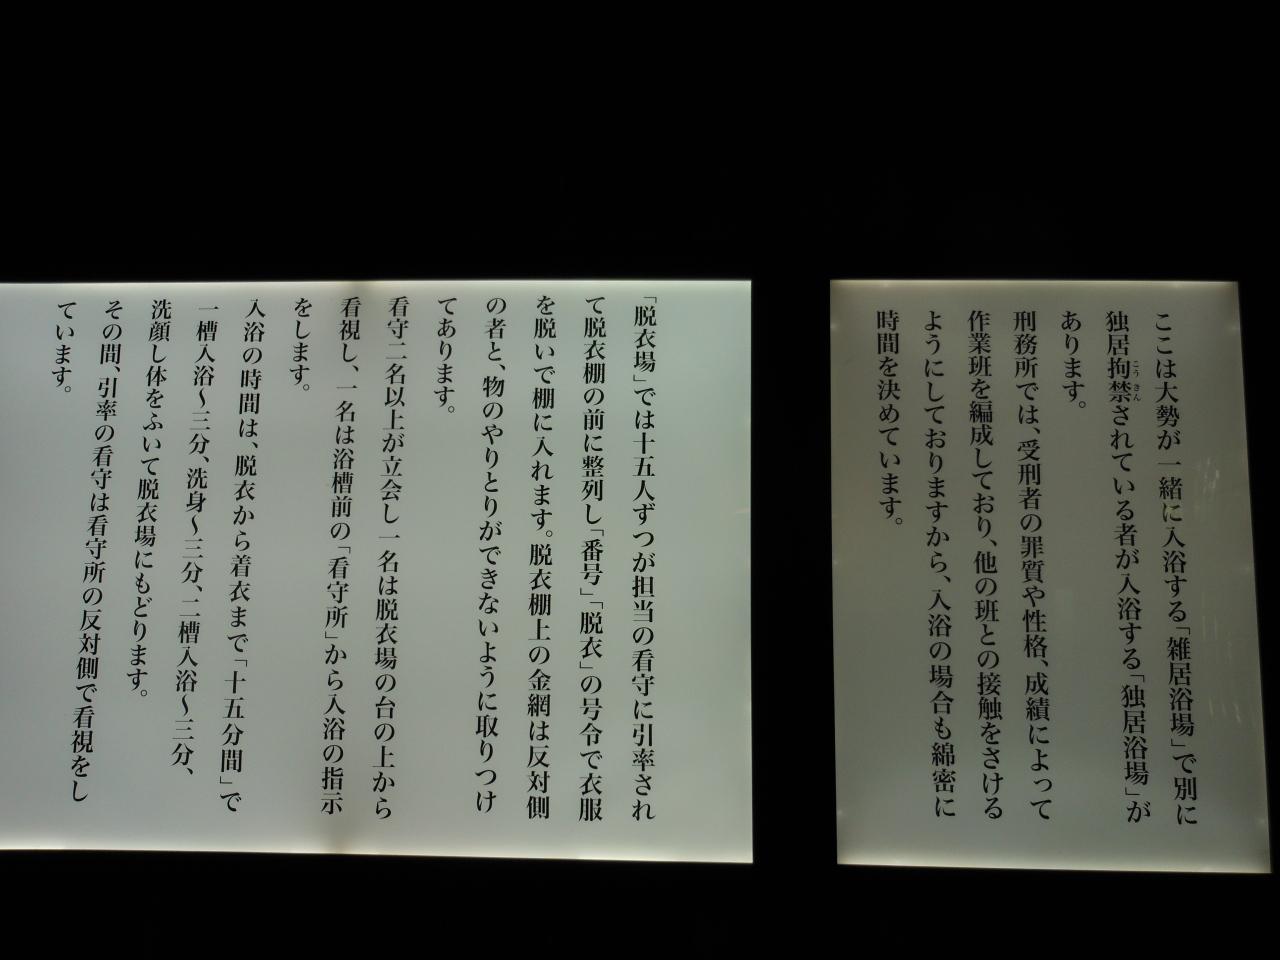 ここは大勢が一緒に入浴する「雑居浴場」で別に
独居拘禁されている者が入浴する「独居浴場」が
こうきん
あります。
刑務所では、受刑者の罪質や性格、成績によって
作業班を編成しており、他の班との接触をさける
ようにしておりますから、入浴の場合も綿密に
時間を決めています。
「脱衣場」では十五人ずつが担当の看守に引率され
て脱衣棚の前に整列し「番号」「脱衣」の号令で衣服
を脱いで棚に入れます。脱衣棚上の金網は反対側
の者と、物のやりとりができないように取りつけ
てあります。
看守二名以上が立会し一名は脱衣場の台の上から
看視し、一名は浴槽前の「看守所」から入浴の指示
をします。
入浴の時間は、脱衣から着衣まで「十五分間」で
一槽入浴〜三分、洗身〜三分、二槽入浴〜三分、
洗顔し体をふいて脱衣場にもどります。
その間、引率の看守は看守所の反対側で看視をし
ています。